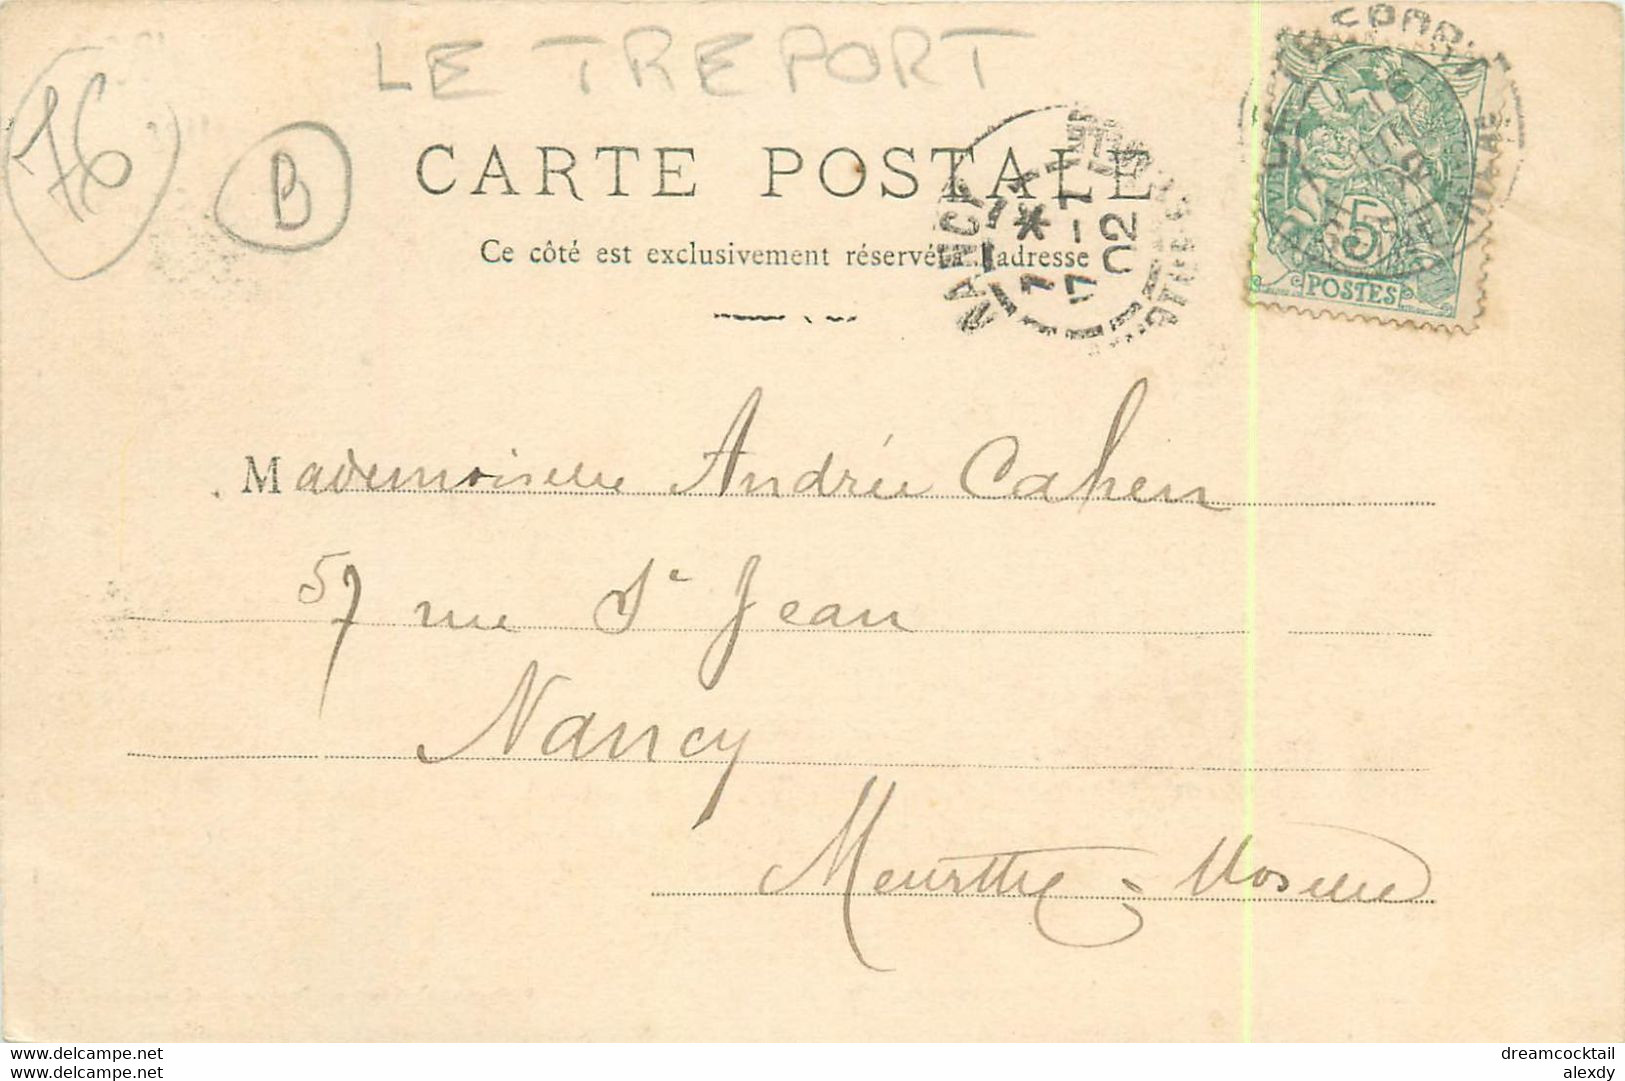 LE TREPORT
76
B
CARTE POSTALE
Ce côté est exclusivement réservé à l'adresse
NANCY
7 *
17 - 7
02
5
POSTES
Mademoiselle Andrée Cahen
57 rue St Jean
Nancy
Meurthe & Moselle
www.delcampe.net
dreamcocktail
www.delcampe.net
alexdy